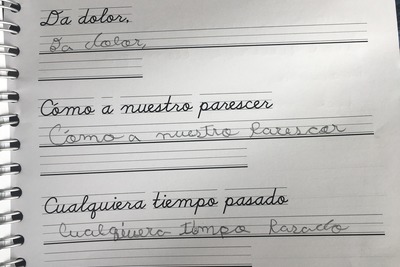 Da dolor,
Da dolor,
Cómo a nuestro parescer
Cómo a nuestro Parescer
Cualquiera tiempo pasado
Cualquiera timpo Pasado